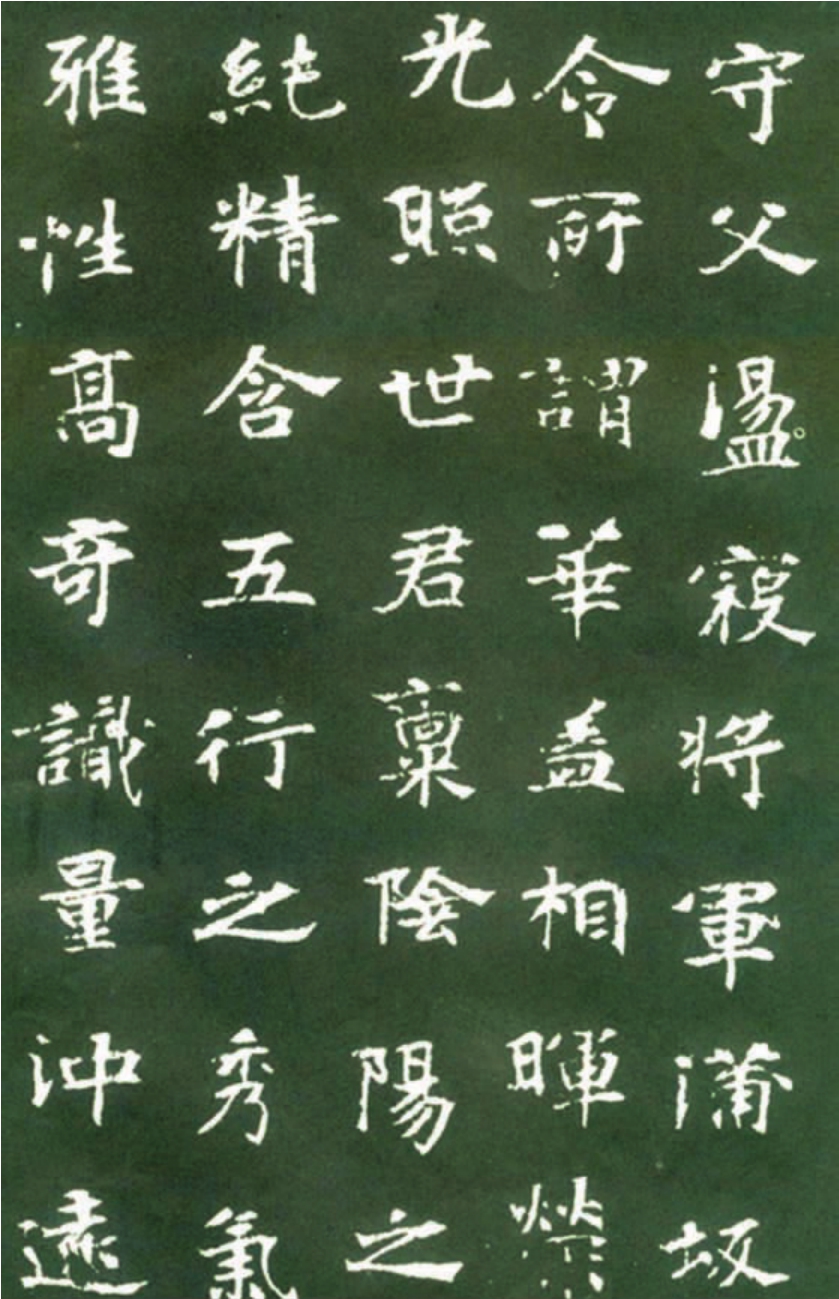 守父盪寇將軍蒲坂
令所謂華盖相暉榮
光照世君稟陰陽之
純精含五行之秀氣
雅性髙奇識量沖遠